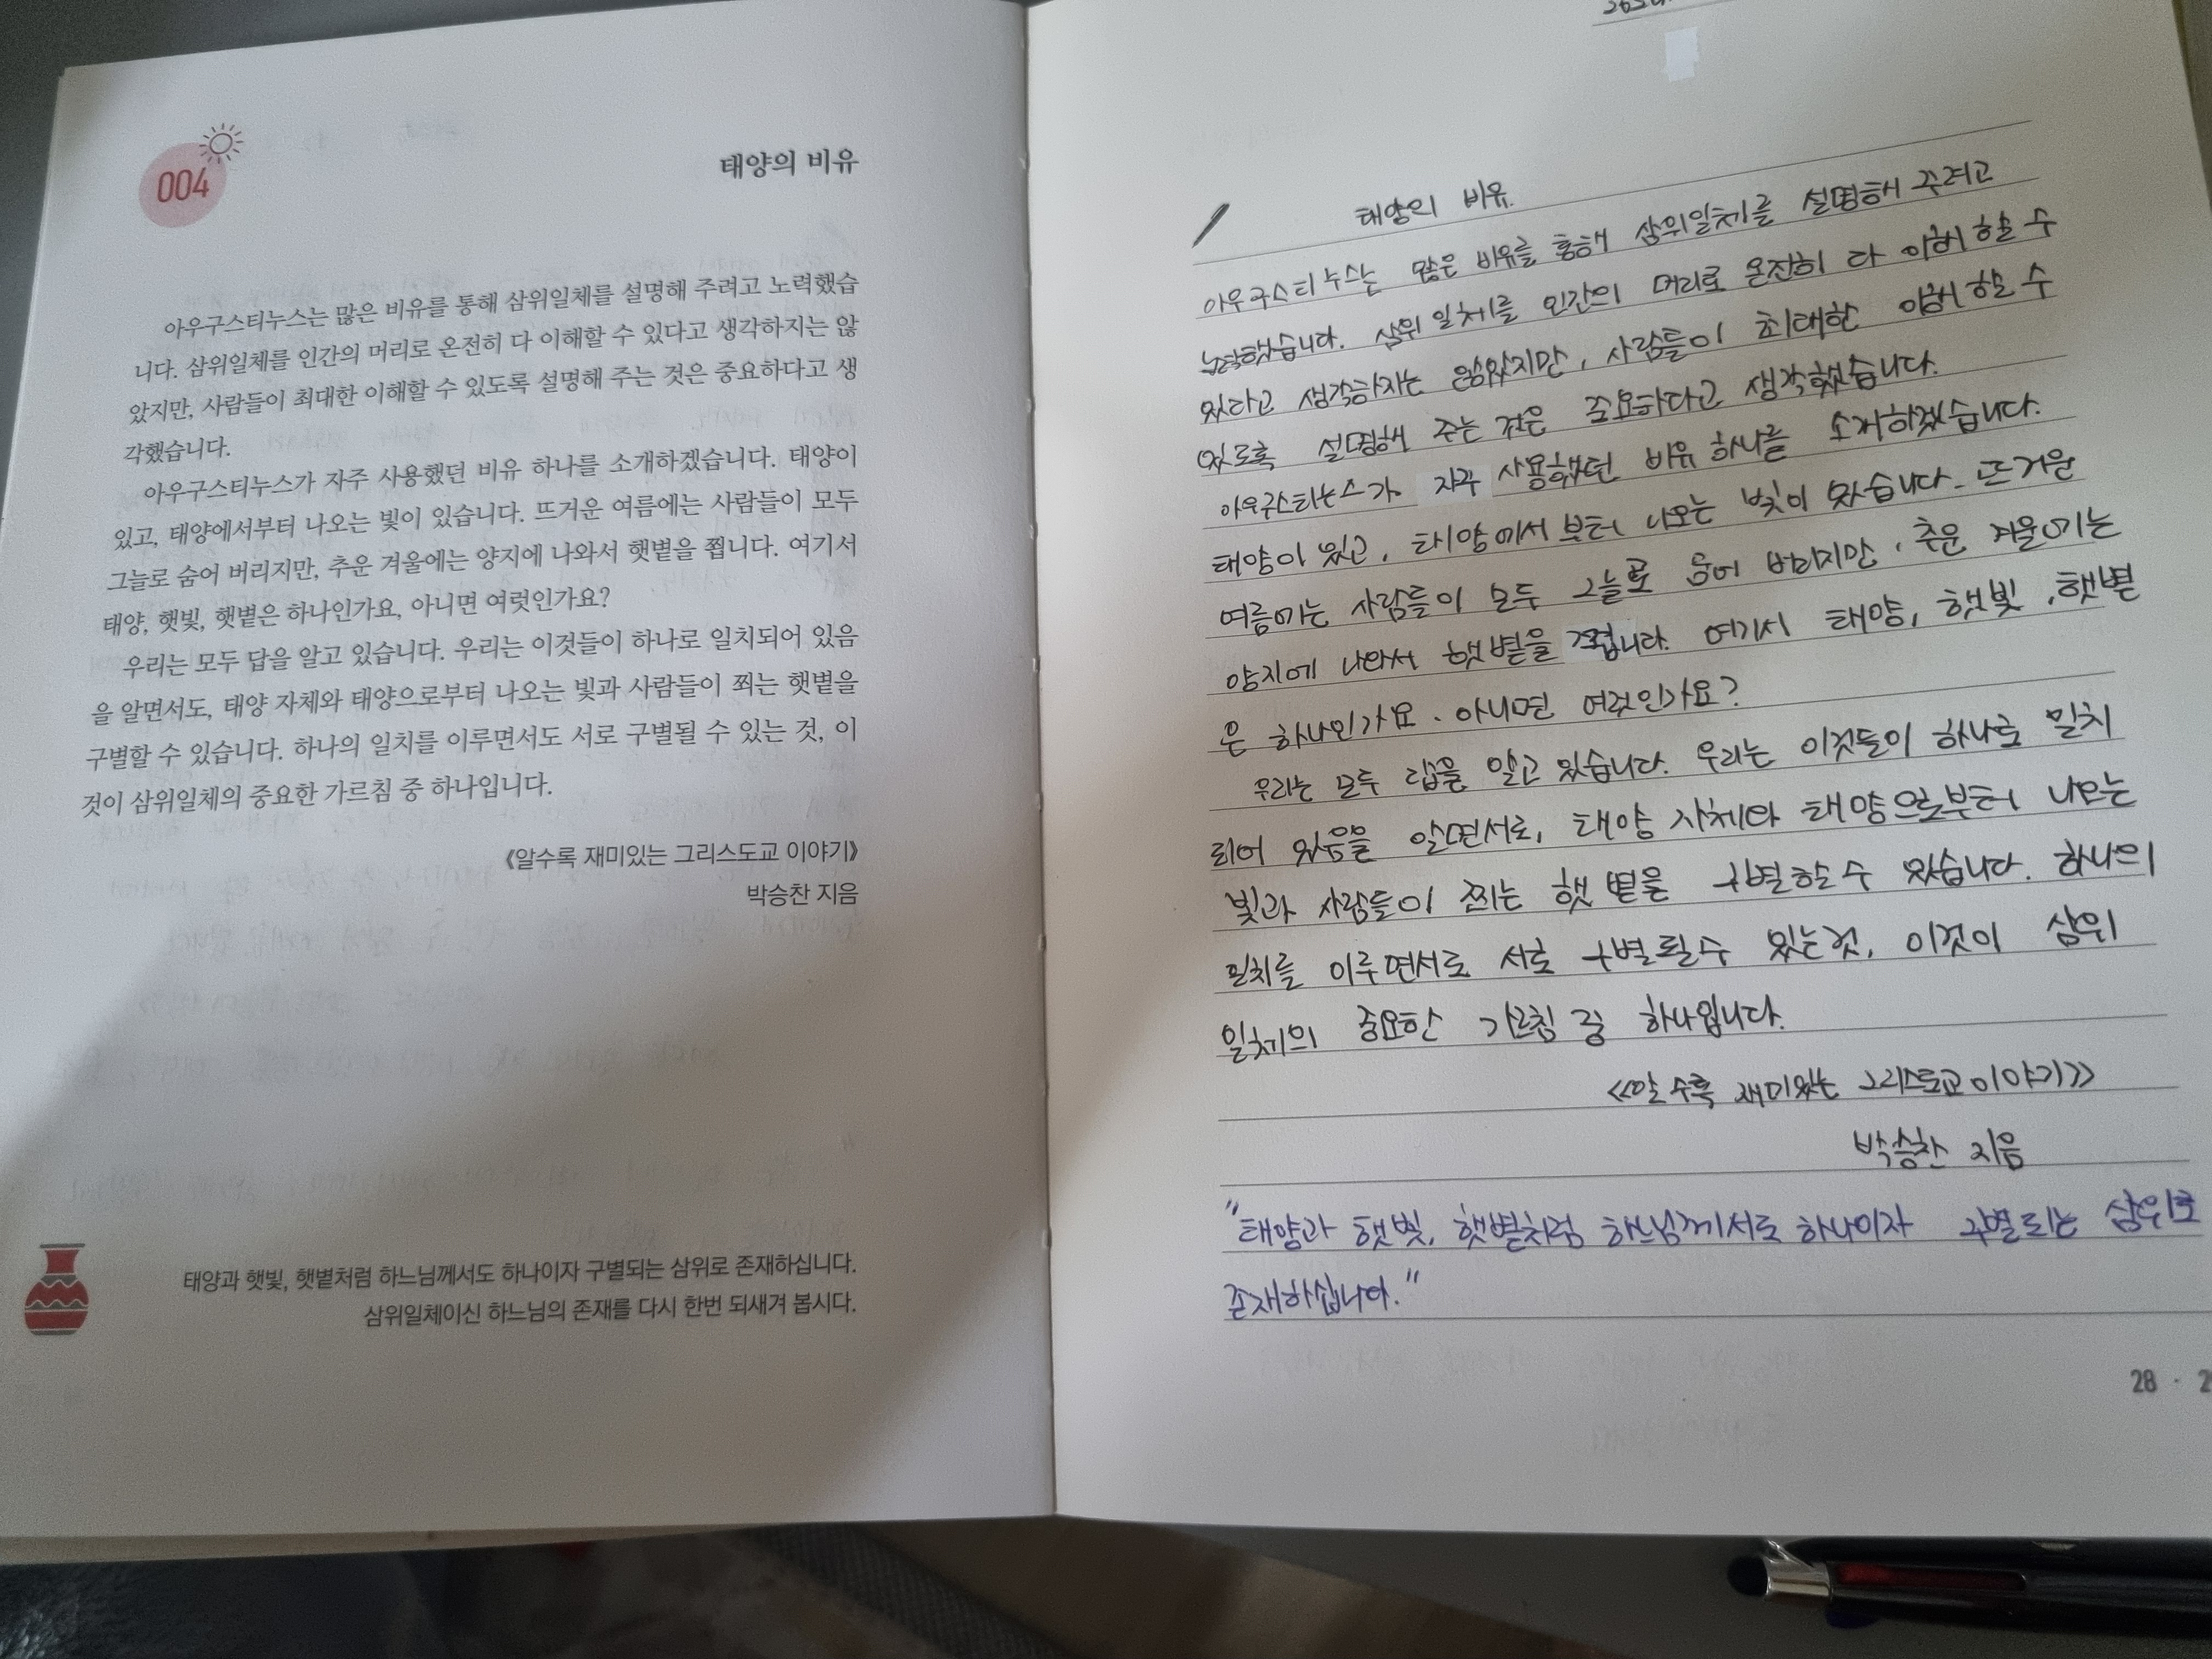 004
태양의 비유
아우구스티누스는 많은 비유를 통해 삼위일체를 설명해 주려고 노력했습
니다. 삼위일체를 인간의 머리로 온전히 다 이해할 수 있다고 생각하지는 않
았지만, 사람들이 최대한 이해할 수 있도록 설명해 주는 것은 중요하다고 생
각했습니다.
아우구스티누스가 자주 사용했던 비유 하나를 소개하겠습니다. 태양이
있고, 태양에서부터 나오는 빛이 있습니다. 뜨거운 여름에는 사람들이 모두
그늘로 숨어 버리지만, 추운 겨울에는 양지에 나와서 햇볕을 쬡니다. 여기서
태양, 햇빛, 햇볕은 하나인가요, 아니면 여럿인가요?
우리는 모두 답을 알고 있습니다. 우리는 이것들이 하나로 일치되어 있음
을 알면서도, 태양 자체와 태양으로부터 나오는 빛과 사람들이 쬐는 햇볕을
구별할 수 있습니다. 하나의 일치를 이루면서도 서로 구별될 수 있는 것, 이
것이 삼위일체의 중요한 가르침 중 하나입니다.
《알수록 재미있는 그리스도교 이야기》
박승찬 지음
태양과 햇빛, 햇볕처럼 하느님께서도 하나이자 구별되는 삼위로 존재하십니다.
삼위일체이신 하느님의 존재를 다시 한번 되새겨 봅시다.
태양의 비유.
아우구스티누스는 많은 비유를 통해 삼위일체를 설명해 주려고
노력했습니다. 삼위일체를 인간의 머리로 온전히 다 이해할 수
있다고 생각하지는 않았지만, 사람들이 최대한 이해할 수
있도록 설명해 주는 것은 중요하다고 생각했습니다.
아우구스티누스가 자주 사용했던 비유 하나를 소개하겠습니다.
태양이 있고, 태양에서부터 나오는 빛이 있습니다. 뜨거운
여름에는 사람들이 모두 그늘로 숨어 버리지만, 추운 겨울에는
양지에 나와서 햇볕을 여기서 태양, 햇빛, 햇볕
은 하나인가요. 아니면 여럿인가요?
우리는 모두 답을 알고 있습니다. 우리는 이것들이 하나로 일치
되어 있음을 알면서도, 태양 자체와 태양으로부터 나오는
빛과 사람들이 쬐는 햇볕을 구별할 수 있습니다. 하나의
일치를 이루면서도 서로 구별될 수 있는 것, 이것이 삼위
일체의 중요한 가르침 중 하나입니다.
<<알수록 재미있는 그리스도교 이야기>>
박승찬 지음
"태양과 햇빛, 햇볕처럼 하느님께서도 하나이자 구별되는 삼위로
존재하십니다."
28 ·